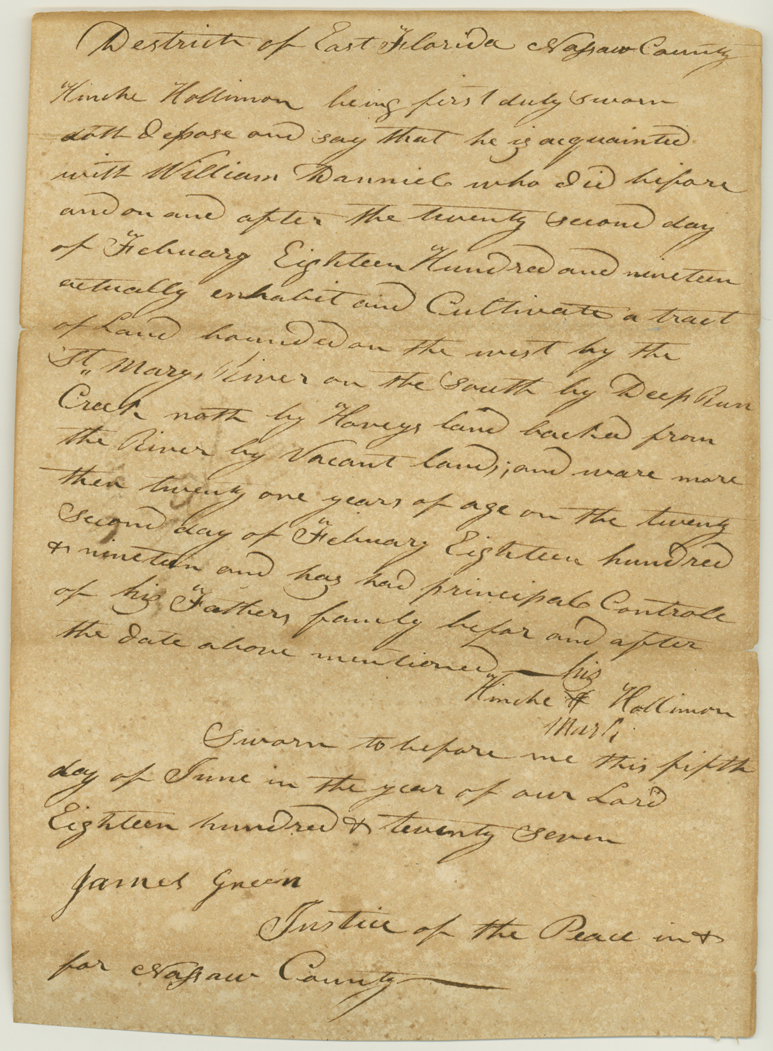 Destrict of East Florida Nassaw County
Hinche Hollimon being first duly sworn
doth depose and say that he is acquainted
with William Danniels who did before
and on and after the twenty second day
of Febuary Eighteen Hundred and nineteen
actually enhabit and Cultivate a tract
of Land bounded on the west by the
St,, Marys River on the South by Deep Run
Creek noth by Hoveys land backed from
the River by Vacant lands; and ware more
then twenty one years of age on the twenty
second day of Febuary Eighteen hundred
& nineteen and has had principal Controle
of his Fathers family befor and after
the date above mentioned — his
Hinche H Hollimon
Mark
Sworn to before me this fifth
day of June in the year of our Lord
Eighteen hundred & twenty seven
James Green
Justice of the Peace in &
for Nassaw County —